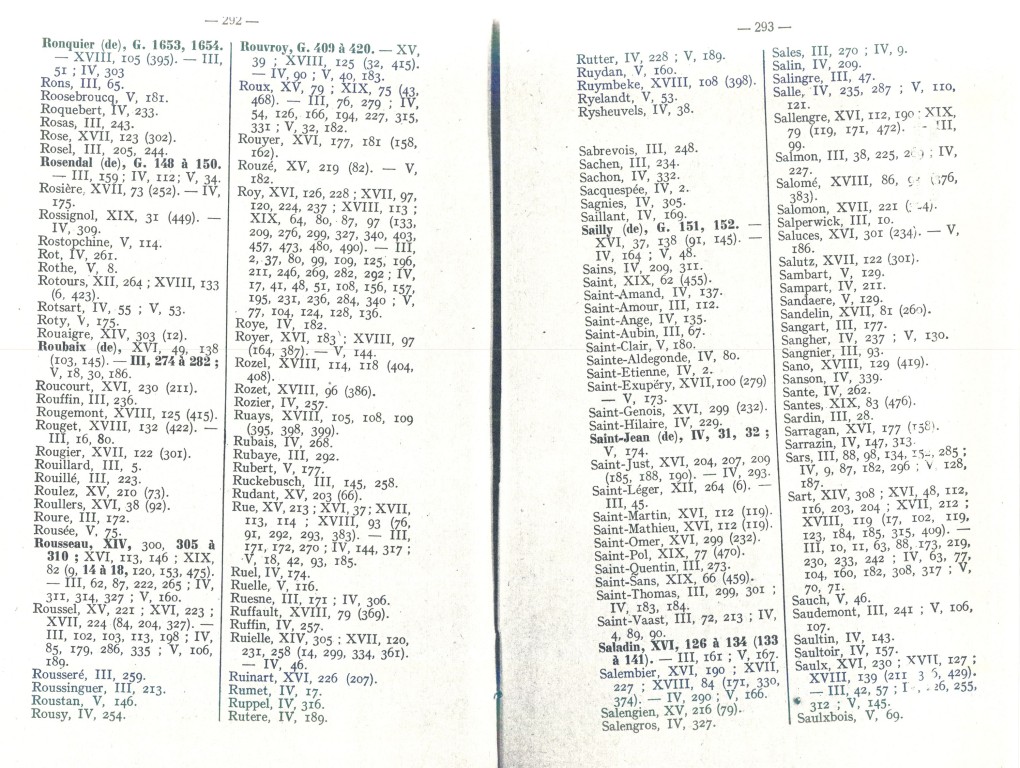 — 292 —
Ronquier (de), G. 1653, 1654.
— XVIII, 105 (395). — III,
51 ; IV, 303
Rons, III, 65.
Roosebroucq, V, 181.
Roquebert, IV, 233.
Rosas, III, 243.
Rose, XVII, 123 (302).
Rosel, III, 205, 244.
Rosendal (de), G. 148 à 150.
— III, 159 ; IV, 112 ; V, 34.
Rosière, XVII, 73 (252). — IV,
175.
Rossignol, XIX, 31 (449). —
IV, 309.
Rostopchine, V, 114.
Rot, IV, 261.
Rothe, V, 8.
Rotours, XII, 264 ; XVIII, 133
(6, 423).
Rotsart, IV, 55 ; V, 53.
Roty, V, 175.
Rouaigre, XIV, 303 (12).
Roubaix (de), XVI, 49, 138
(103, 145). — III, 274 à 282 ;
V, 18, 30, 186.
Roucourt, XVI, 230 (211).
Rouffin, III, 236.
Rougemont, XVIII, 125 (415).
Rouget, XVIII, 132 (422). —
III, 16, 80.
Rougier, XVII, 122 (301).
Rouillard, III, 5.
Rouillé, III, 223.
Roulez, XV, 210 (73).
Roullers, XVI, 38 (92).
Roure, III, 172.
Rousée, V, 75.
Rousseau, XIV, 300, 305 à
310 ; XVI, 113, 146 ; XIX,
82 (9, 14 à 18, 120, 153, 475).
— III, 62, 87, 222, 265 ; IV,
311, 314, 327 ; V, 160.
Roussel, XV, 221 ; XVI, 223 ;
XVII, 224 (84, 204, 327). —
III, 102, 103, 113, 198 ; IV,
85, 179, 286, 335 ; V, 106,
189.
Rousseré, III, 259.
Roussinguer, III, 213.
Roustan, V, 146.
Rousy, IV, 254.
Rouvroy, G. 409 à 420. — XV,
39 ; XVIII, 125 (32, 415).
— IV, 90 ; V, 40, 183.
Roux, XV, 79 ; XIX, 75 (43,
468). — III, 76, 279 ; IV,
54, 126, 166, 194, 227, 315,
331 ; V, 32, 182.
Rouyer, XVI, 177, 181 (158,
162).
Rouzé, XV, 219 (82). — V,
182.
Roy, XVI, 126, 228 ; XVII, 97,
120, 224, 237 ; XVIII, 113 ;
XIX, 64, 80, 87, 97 (133,
209, 276, 299, 327, 340, 403,
457, 473, 480, 490). — III,
2, 37, 80, 99, 109, 125, 196,
211, 246, 269, 282, 292 ; IV,
17, 41, 48, 51, 108, 156, 157,
195, 231, 236, 284, 340 ; V,
77, 104, 124, 128, 136.
Roye, IV, 182.
Royer, XVI, 183 ; XVIII, 97
(164, 387). — V, 144.
Rozel, XVIII, 114, 118 (404,
408).
Rozet, XVIII, 96 (386).
Rozier, IV, 257.
Ruays, XVIII, 105, 108, 109
(395, 398, 399).
Rubais, IV, 268.
Rubaye, III, 292.
Rubert, V, 177.
Ruckebusch, III, 145, 258.
Rudant, XV, 203 (66).
Rue, XV, 213 ; XVI, 37 ; XVII,
113, 114 ; XVIII, 93 (76,
91, 292, 293, 383). — III,
171, 172, 270 ; IV, 144, 317 ;
V, 18, 42, 93, 185.
Ruel, IV, 174.
Ruelle, V, 116.
Ruesne, III, 171 ; IV, 306.
Ruffault, XVIII, 79 (369).
Ruffin, IV, 257.
Ruielle, XIV, 305 ; XVII, 120,
231, 258 (14, 299, 334, 361).
— IV, 46.
Ruinart, XVI, 226 (207).
Rumet, IV, 17.
Ruppel, IV, 316.
Rutere, IV, 189.
— 293 —
Rutter, IV, 228 ; V, 189.
Ruydan, V, 160.
Ruymbeke, XVIII, 108 (398).
Ryelandt, V, 53.
Rysheuvels, IV, 38.
Sabrevois, III, 248.
Sachen, III, 234.
Sachon, IV, 332.
Sacquespée, IV, 2.
Sagnies, IV, 305.
Saillant, IV, 169.
Sailly (de), G. 151, 152. —
XVI, 37, 138 (91, 145). —
IV, 164 ; V, 48.
Sains, IV, 209, 311.
Saint, XIX, 62 (455).
Saint-Amand, IV, 137.
Saint-Amour, III, 112.
Saint-Ange, IV, 135.
Saint-Aubin, III, 67.
Saint-Clair, V, 180.
Sainte-Aldegonde, IV, 80.
Saint-Etienne, IV, 2.
Saint-Exupéry, XVII, 100 (279)
— V, 173.
Saint-Genois, XVI, 299 (232).
Saint-Hilaire, IV, 229.
Saint-Jean (de), IV, 31, 32 ;
V, 174.
Saint-Just, XVI, 204, 207, 209
(185, 188, 190). — IV, 293.
Saint-Léger, XII, 264 (6). —
III, 45.
Saint-Martin, XVI, 112 (119).
Saint-Mathieu, XVI, 112 (119).
Saint-Omer, XVI, 299 (232).
Saint-Pol, XIX, 77 (470).
Saint-Quentin, III, 273.
Saint-Sans, XIX, 66 (459).
Saint-Thomas, III, 299, 301 ;
IV, 183, 184.
Saint-Vaast, III, 72, 213 ; IV,
4, 89, 90.
Saladin, XVI, 126 à 134 (133
à 141). — III, 161 ; V, 167.
Salembier, XVI, 190 ; XVII,
227 ; XVIII, 84 (171, 330,
374). — IV, 290 ; V, 166.
Salengien, XV, 216 (79).
Salengros, IV, 327.
Sales, III, 270 ; IV, 9.
Salin, IV, 209.
Salingre, III, 47.
Salle, IV, 235, 287 ; V, 110,
121.
Sallengre, XVI, 112, 190 ; XIX,
79 (119, 171, 472). — III,
99.
Salmon, III, 38, 225, ; IV,
227.
Salomé, XVIII, 86, (376,
383).
Salomon, XVII, 221
Salperwick, III, 10.
Saluces, XVI, 301 (234). — V,
186.
Salutz, XVII, 122 (301).
Sambart, V, 129.
Sampart, IV, 211.
Sandaere, V, 129.
Sandelin, XVII, 81 (260).
Sangart, III, 177.
Sangher, IV, 237 ; V, 130.
Sangnier, III, 93.
Sano, XVIII, 129 (419).
Sanson, IV, 339.
Sante, IV, 262.
Santes, XIX, 83 (476).
Sardin, III, 28.
Sarragan, XVI, 177 (158).
Sarrazin, IV, 147, 313.
Sars, III, 88, 98, 134, 285 ;
IV, 9, 87, 182, 296 ; V, 128,
187.
Sart, XIV, 308 ; XVI, 48, 112,
116, 203, 204 ; XVII, 212 ;
XVIII, 119 (17, 102, 119,
123, 184, 185, 315, 409). —
III, 10, 11, 63, 88, 173, 219,
230, 233, 242 ; IV, 63, 77,
104, 160, 182, 308, 317 ; V,
70, 71.
Sauch, V, 46.
Saudemont, III, 241 ; V, 106,
107.
Saultin, IV, 143.
Saultoir, IV, 157.
Saulx, XVI, 230 ; XVII, 127 ;
XVIII, 139 (211 429).
— III, 42, 57 ; 255,
312 ; V, 145.
Saulxbois, V, 69.